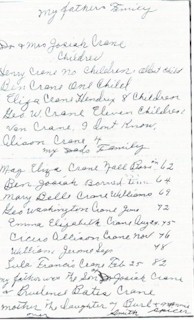 My Father's Family
Dr & Mrs Josiah Crane
Children
Henry Crane No Children
Ben Crane One Child
Eliza Crane Hendry 8 Children
Geo W. Crane Eleven Children
Van Crane, I don't Know,
Allison Crane
My Dads Family
Mag Eliza Crane Hall Born 62
Ben Josiah Borned 64
Mary Belle Crane Williams 69
Geo Washington Crane June 72
Emma Elizabeth Crane 75
Allison Crane Nov 76
William Sep 78
Lula Francis Crane Feb 25 82
My father was the Son of Josiah Crane
& Prudence Bates Crane
Mother the Daughter of
Smith Spicer